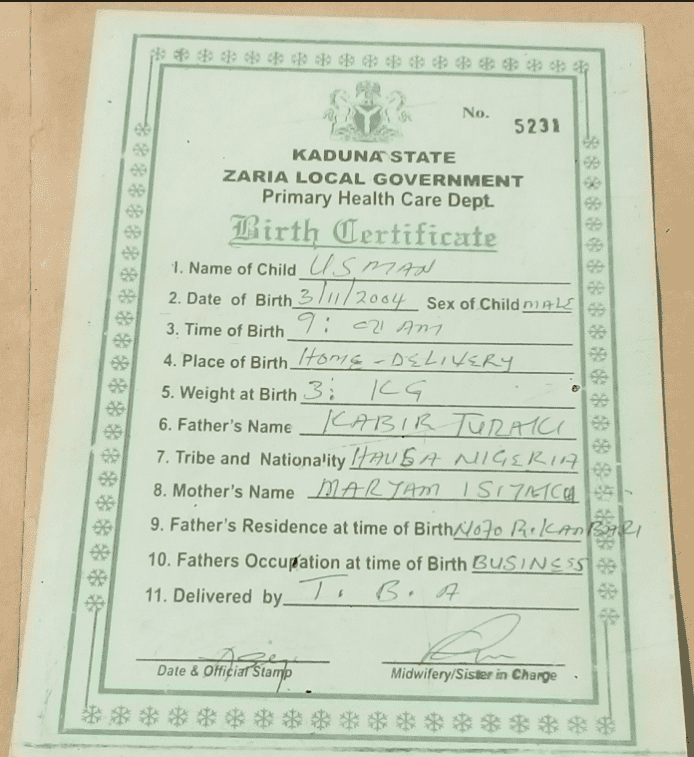 No. 5231
KADUNA STATE
ZARIA LOCAL GOVERNMENT
Primary Health Care Dept.
Birth Certificate
1. Name of Child USMAN
2. Date of Birth 3/11/2004 Sex of Child MALE
3. Time of Birth 9: 01 AM
4. Place of Birth HOME-DELIVERY
5. Weight at Birth 3: KG
6. Father's Name KABIR TURAKI
7. Tribe and Nationality HAUSA NIGERIA
8. Mother's Name MARYAM
9. Father's Residence at time of Birth
10. Fathers Occupation at time of Birth BUSINESS
11. Delivered by T. B. A
Date & Official Stamp Midwifery/Sister in Charge